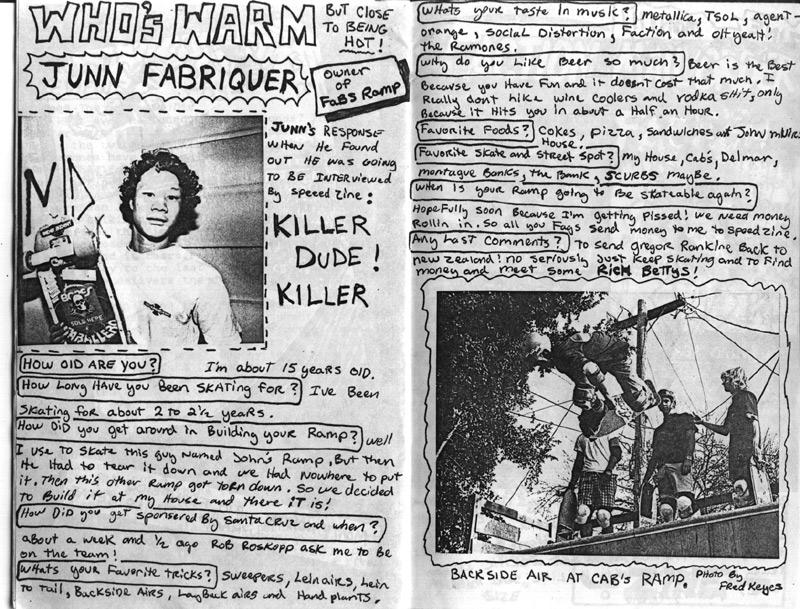 WHO'S WARM
BUT CLOSE
TO BEING
HOT!
JUNN FABRIQUER
OWNER
OF
FABS RAMP
JUNN'S RESPONSE
WHEN HE FOUND
OUT HE WAS GOING
TO BE INTERVIEWED
BY SPEEED ZINE:
KILLER
DUDE!
KILLER
HOW OLD ARE YOU? I'm about 15 years old.
HOW LONG HAVE YOU BEEN SKATING FOR? I've Been
skating for about 2 to 2½ years.
How Did you get around in Building your Ramp? well
I use to skate this guy named John's Ramp, But then
He Had to tear it down and we Had Nowhere to put
it. Then this other Ramp got torn down. So we decided
to Build it at my House and there IT is!
How Did you get sponsered By Santa Cruz and when?
about a week and ½ ago Rob Roskopp ask me to Be
on the team!
Whats your Favorite tricks? Sweepers, Leinairs, Lein
to tail, Backside Airs, LayBack airs and Handplants.
Whats your taste In music? metallica, TSOL, agent-
orange, Social Distortion, Faction and oh yeah!
the Ramones.
Why do you Like Beer so much? Beer is the Best
Because you Have Fun and it doesnt cost that much, I
Really dont hike wine coolers and vodka shit, only
Because it Hits you in about a Half an Hour.
Favorite Foods? Cokes, pizza, Sandwiches at John
House.
Favorite Skate and Street Spot? my House, Cab's, Delmar,
montague Banks, the Bank, 5 curbs maybe.
When is your Ramp going to Be skateable again?
Hopefully soon Because I'm getting Pissed! we need money
Rollin in. So all you Fags send money to me to Speedzine.
Any Last Comments? To send gregor Rankine Back to
new zealand! no seriously Just keep skating and to Find
money and meet some RICH BETTYS!
BACKSIDE AIR AT CAB'S RAMP. PHOTO BY
FRED KEYES